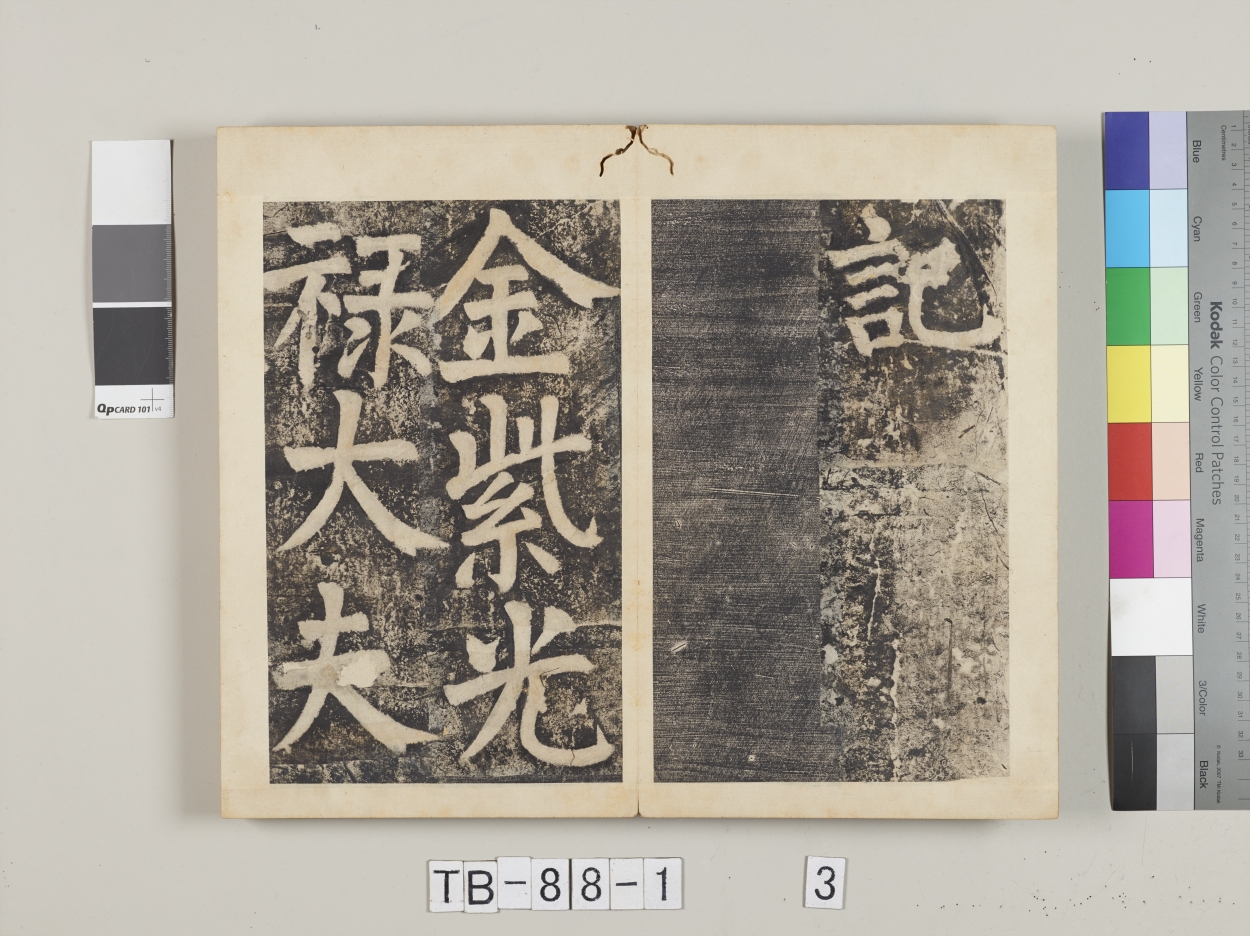 記
金紫光
禄大夫
TB-88-1
3
QPCARD 101 v4
Kodak Color Control Patches
Blue
Cyan
Green
Yellow
Red
Magenta
White
3/Color
Black
Centimetres
1 2 3 4 5 6 7 8 9 10 11 12 13 14 15 16 17 18 19 20 21 22 23 24 25 26 27 28 29 30 31 32 33